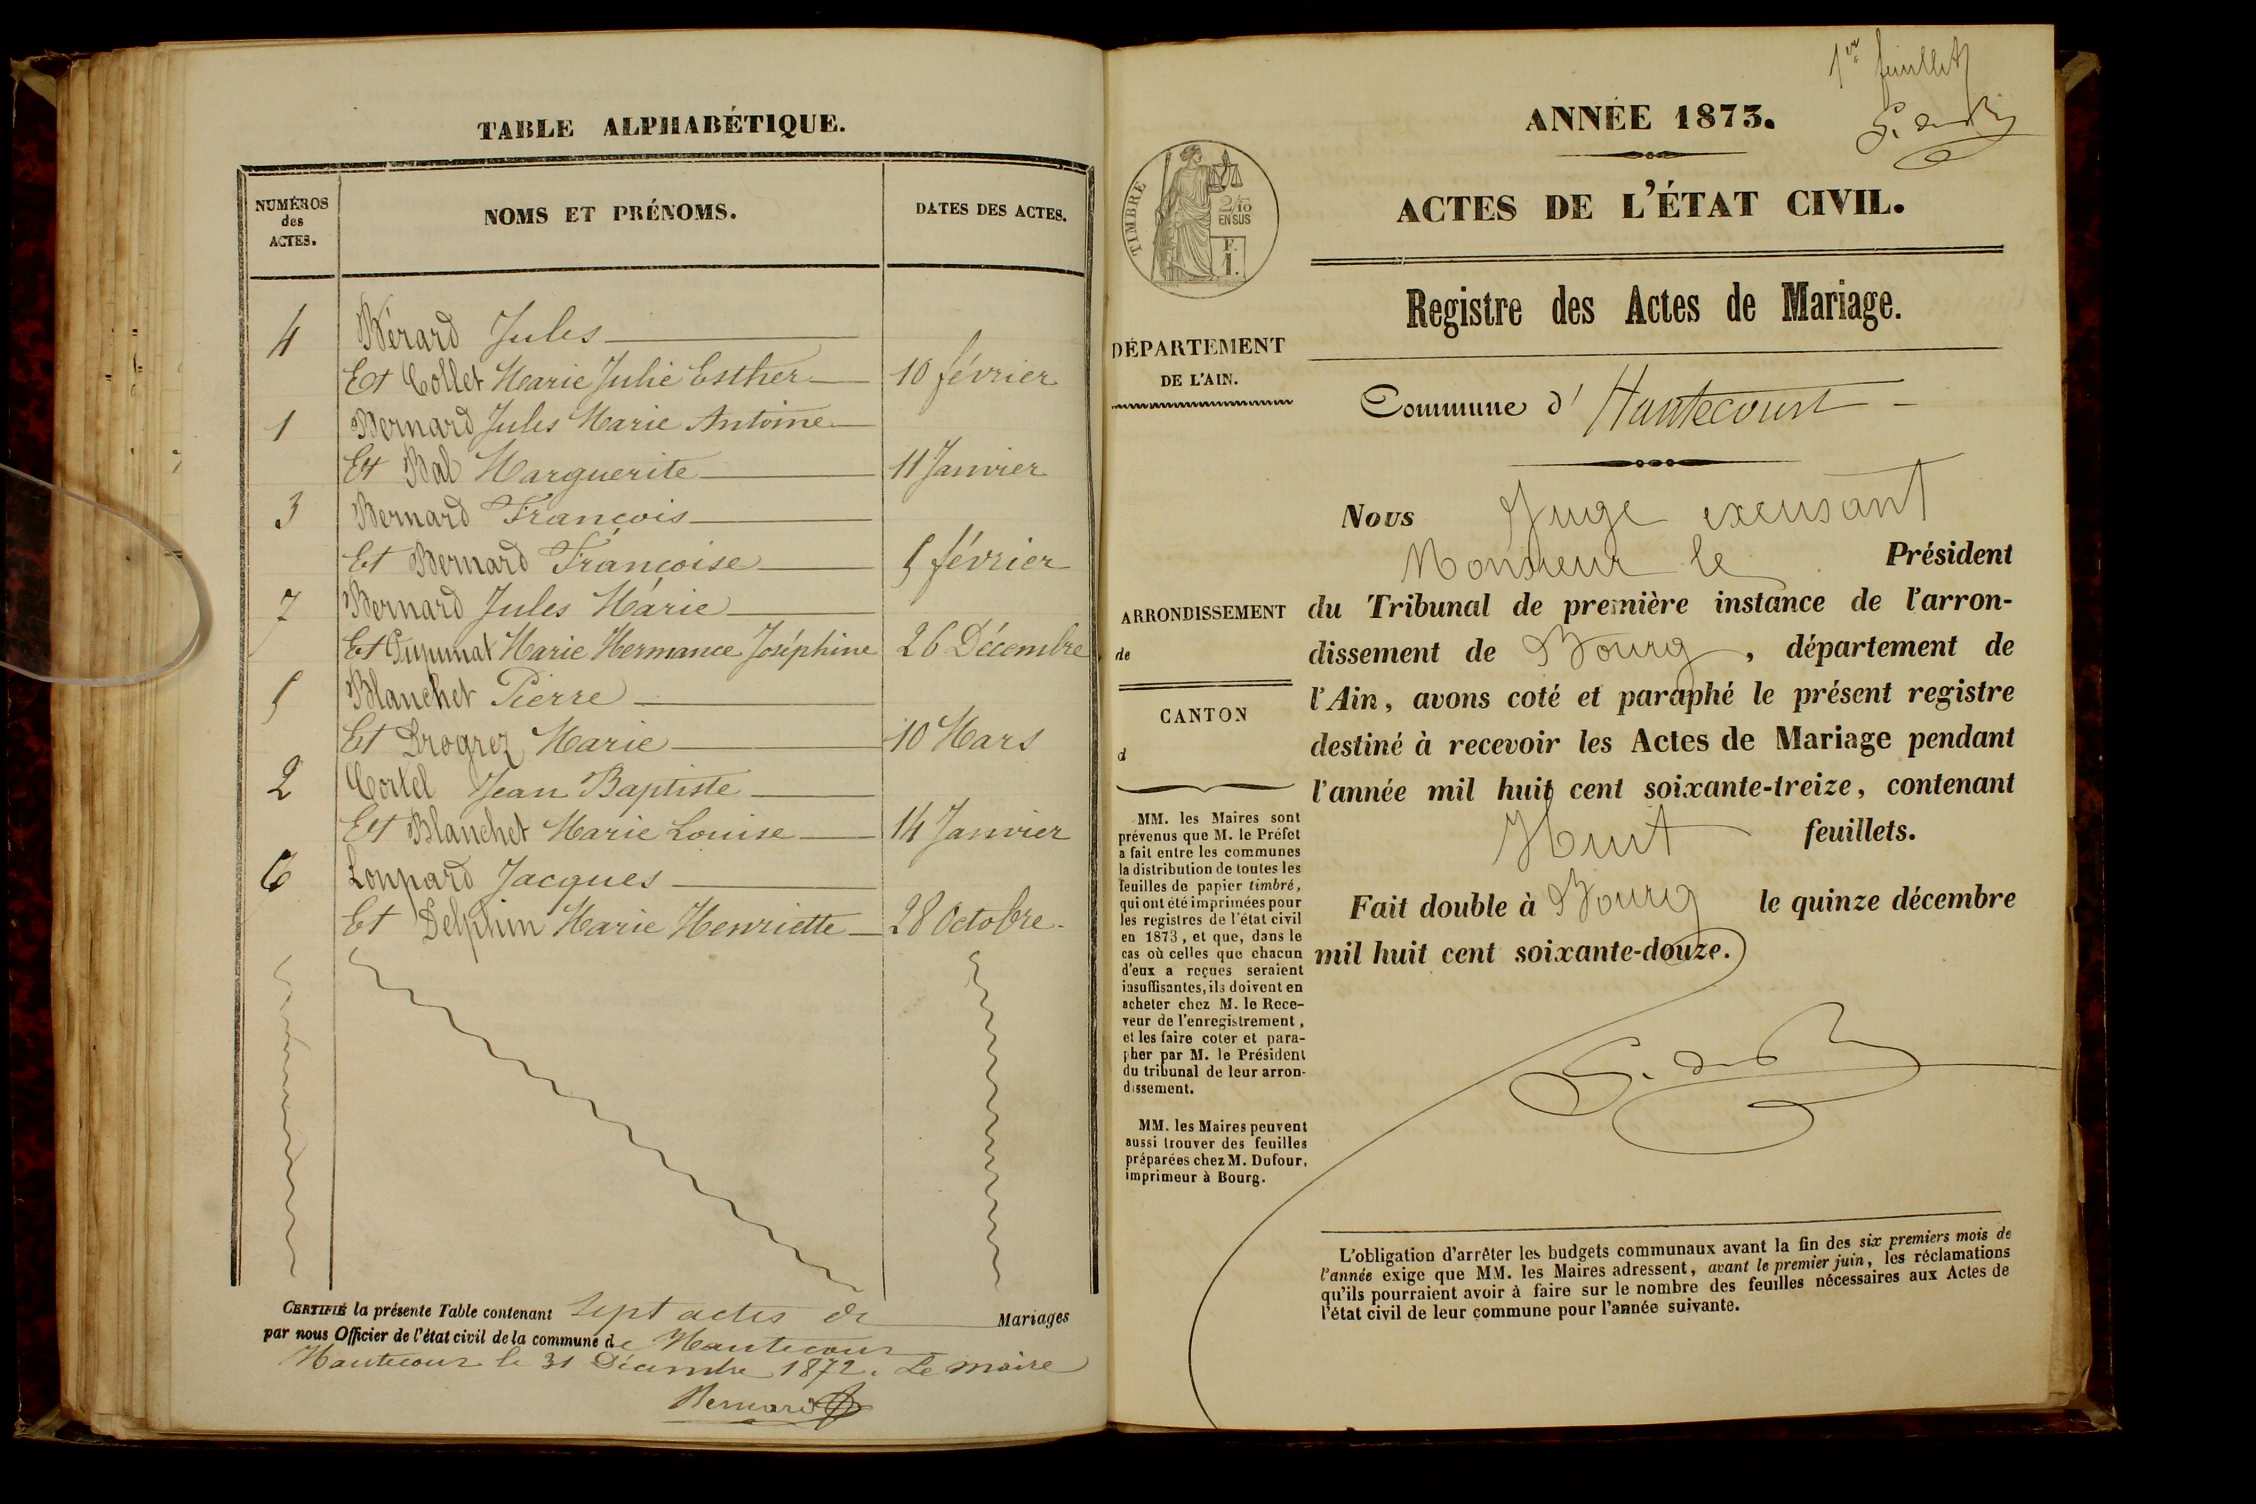 TABLE ALPHABÉTIQUE.
NUMÉROS
des
ACTES.
NOMS ET PRÉNOMS.
DATES DES ACTES.
4 Bérard Jules
Et Collet Marie Julie Esther 10 février
1 Bernard Jules Marie Antoine
Et Bal Marguerite 11 Janvier
3 Bernard François
Et Bernard Françoise 5 février
7 Bernard Jules Marie
Et Marie Hermance Joséphine 26 Décembre
5 Blanchet Pierre
Et Brogrez Marie 10 Mars
2 Cortel Jean Baptiste
Et Blanchet Marie Louise 14 Janvier
6 Jacques
Et Delphin Marie Henriette 28 Octobre
CERTIFIÉ la présente Table contenant Sept actes de Mariages
par nous Officier de l'état civil de la commune de Hautecour
Hautecour le 31 Décembre 1872. Le maire
Bernard
1er feuillet
ANNÉE 1873.
ACTES DE L'ÉTAT CIVIL.
TIMBRE
2/10
EN SUS
F.
1.
Registre des Actes de Mariage.
DÉPARTEMENT
DE L'AIN.
Commune d' Hautecourt
Nous Juge excusant
Monsieur le Président
ARRONDISSEMENT
de
CANTON
d
du Tribunal de première instance de l'arron-
dissement de Bourg, département de
l'Ain, avons coté et paraphé le présent registre
destiné à recevoir les Actes de Mariage pendant
l'année mil huit cent soixante-treize, contenant
Huit feuillets.
Fait double à Bourg le quinze décembre
mil huit cent soixante-douze.
MM. les Maires sont
prévenus que M. le Préfet
a fait entre les communes
la distribution de toutes les
feuilles de papier timbré,
qui ont été imprimées pour
les registres de l'état civil
en 1873, et que, dans le
cas où celles que chacun
d'eux a reçues seraient
insuffisantes, ils doivent en
acheter chez M. le Rece-
veur de l'enregistrement,
et les faire coter et para-
pher par M. le Président
du tribunal de leur arron-
dissement.
MM. les Maires peuvent
aussi trouver des feuilles
préparées chez M. Dufour,
imprimeur à Bourg.
L'obligation d'arrêter les budgets communaux avant la fin des six premiers mois de
l'année exige que MM. les Maires adressent, avant le premier juin, les réclamations
qu'ils pourraient avoir à faire sur le nombre des feuilles nécessaires aux Actes de
l'état civil de leur commune pour l'année suivante.